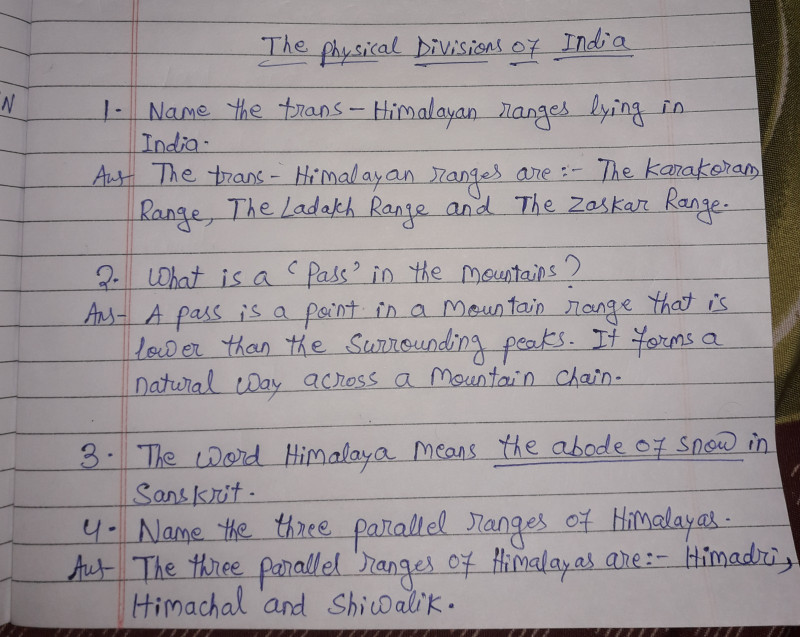 The Physical Divisions of India
N
1- Name the trans-Himalayan ranges lying in
India.
Ans The trans-Himalayan ranges are:- The Karakoram
Range, The Ladakh Range and The Zaskar Range.
2. What is a 'Pass' in the mountains?
Ans- A pass is a point in a mountain range that is
lower than the surrounding peaks. It forms a
natural way across a mountain chain.
3. The word Himalaya means the abode of snow in
Sanskrit.
4- Name the three parallel ranges of Himalayas.
Ans The three parallel ranges of Himalayas are:- Himadri,
Himachal and Shiwalik.